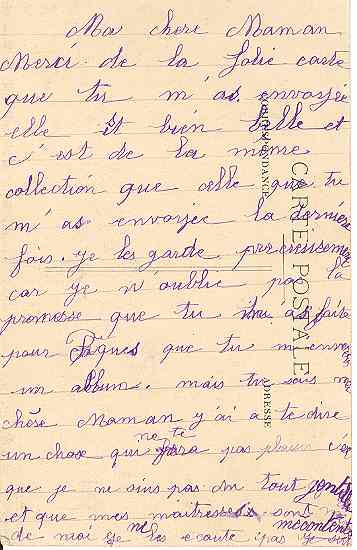 Ma chere Maman
Merci de la Jolie carte
que tu m'as envoyée
elle est bien belle et
c'est de la meme
collection que celle que tu
m'as envoyée la dernière
fois. je les garde precieusement
car je n'oublie pas la
promesse que tu m'as faite
pour Pâques que tu m'enverras
un album. mais tu sais ma
chère Maman j'ai a te dire
un chose qui ne te fera pas plaisir c'est
que je ne suis pas du tout gentille
et que mes maitresses sont
mécontentes
de moi je ne les ecoute pas je suis
CARTE POSTALE
CORRESPONDANCE
ADRESSE